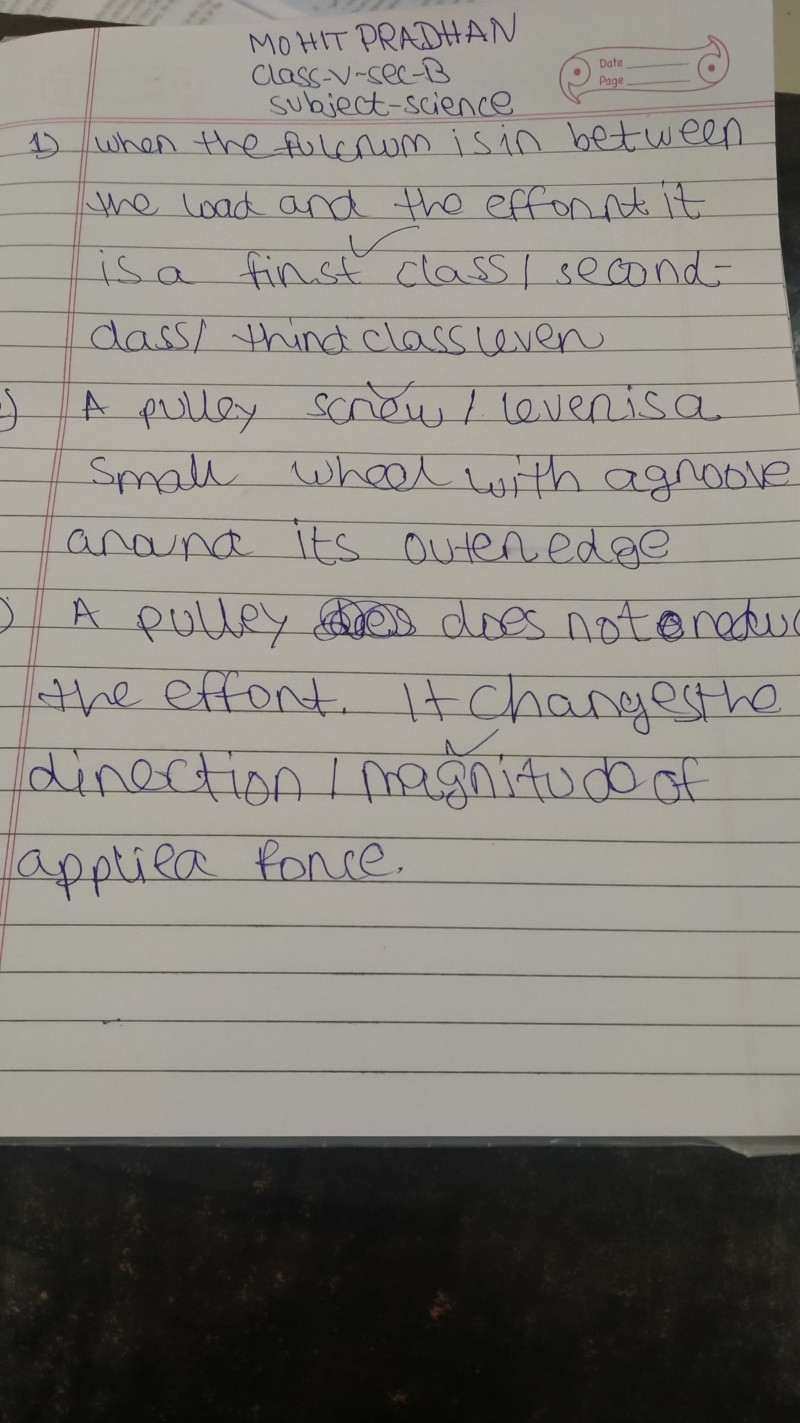 MOHIT PRADHAN
class-v-sec-B
subject-science
Date
Page
1) when the fulcrum is in between
the load and the effornt it
is a first class / second-
class/ third class lever
A pulley screw / lever is a
small wheel with a groove
around its outer edge
) A pulley does not reduc
the effort. It changes the
direction / magnitude of
applied force.